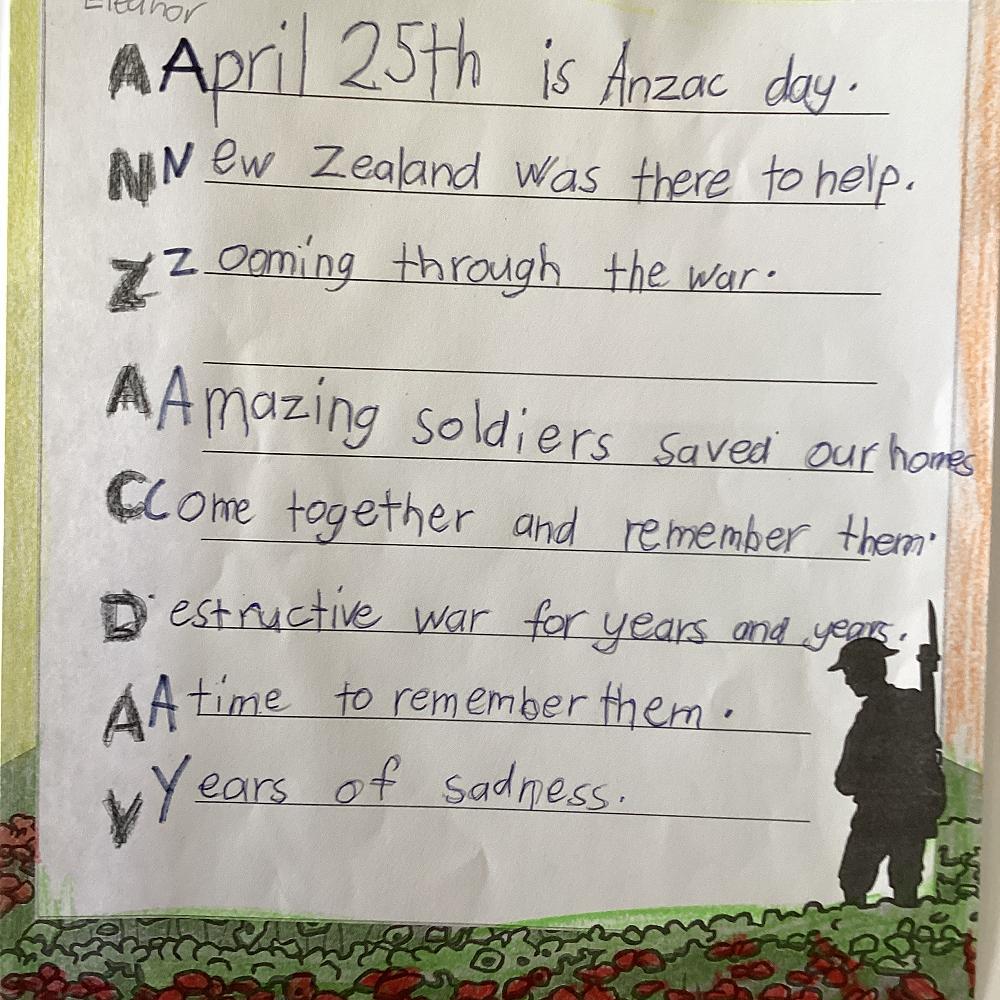 Eleanor
A April 25th is Anzac day.
N New Zealand was there to help.
Z Zooming through the war.
A Amazing soldiers saved our homes
C Come together and remember them.
D estructive war for years and years.
A A time to remember them.
Y Years of sadness.